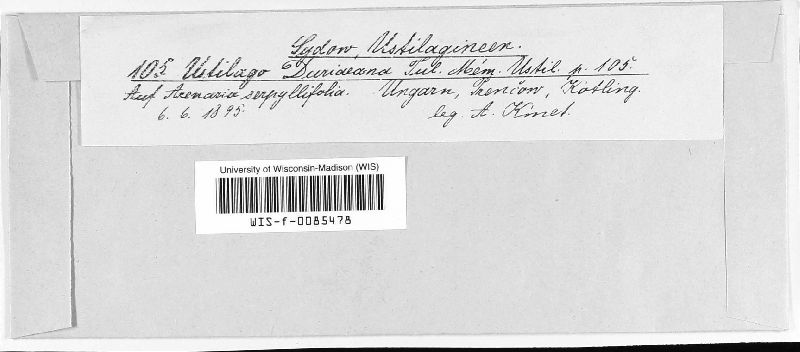 Sydow, Ustilagineen.
105 Ustilago Duriaeana Tul. Mém. Ustil. p. 105.
Auf Arenaria serpyllifolia. Ungarn, Trenčow, Kotling.
6. 6. 1895. leg. A. Kmet.
University of Wisconsin-Madison (WIS)
WIS-f-0085478